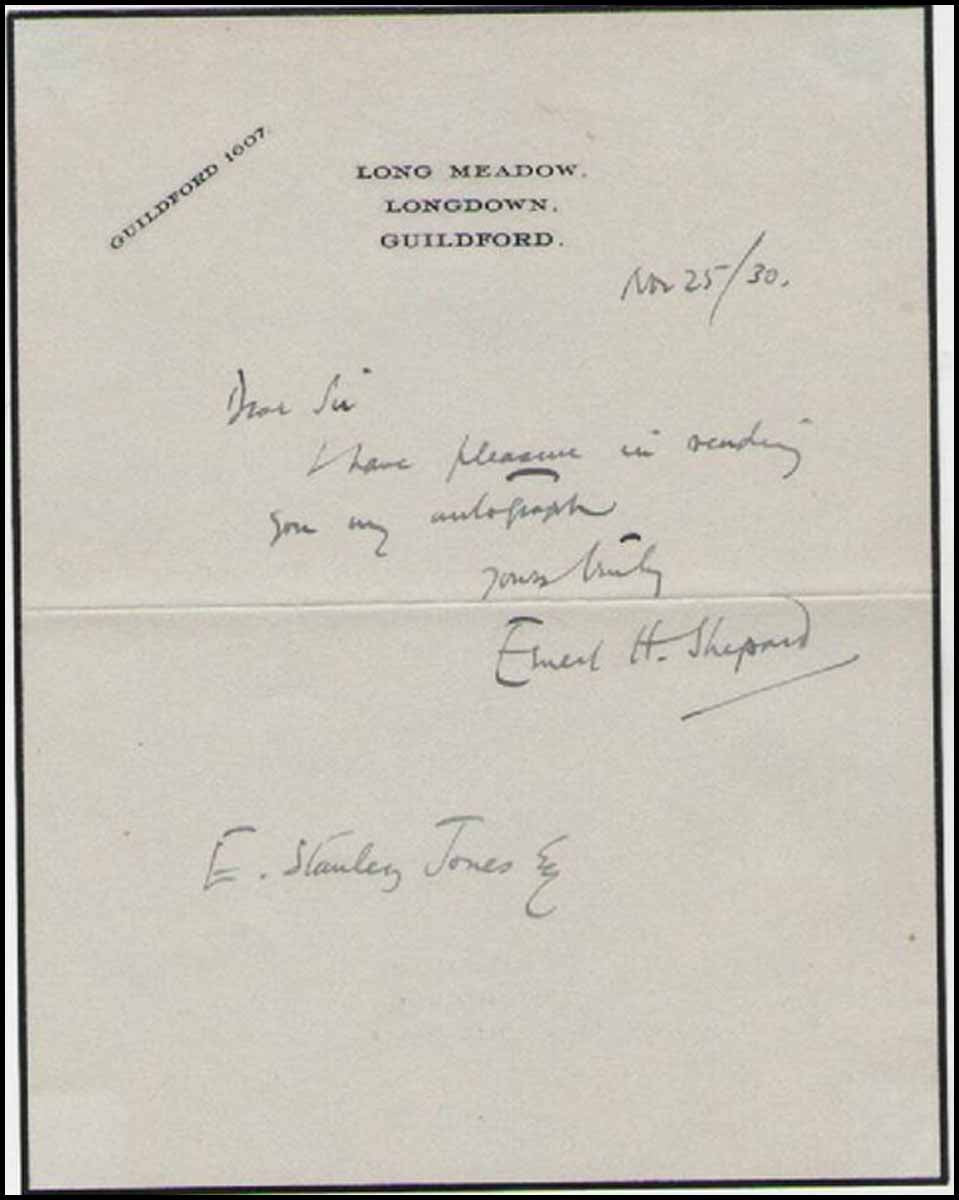 GUILDFORD 1607.
LONG MEADOW.
LONGDOWN.
GUILDFORD.
Nov 25/30.
Dear Sir
I have pleasure in sending
you my autograph
yours truly
Ernest H. Shepard
E. Stanley Jones Esq